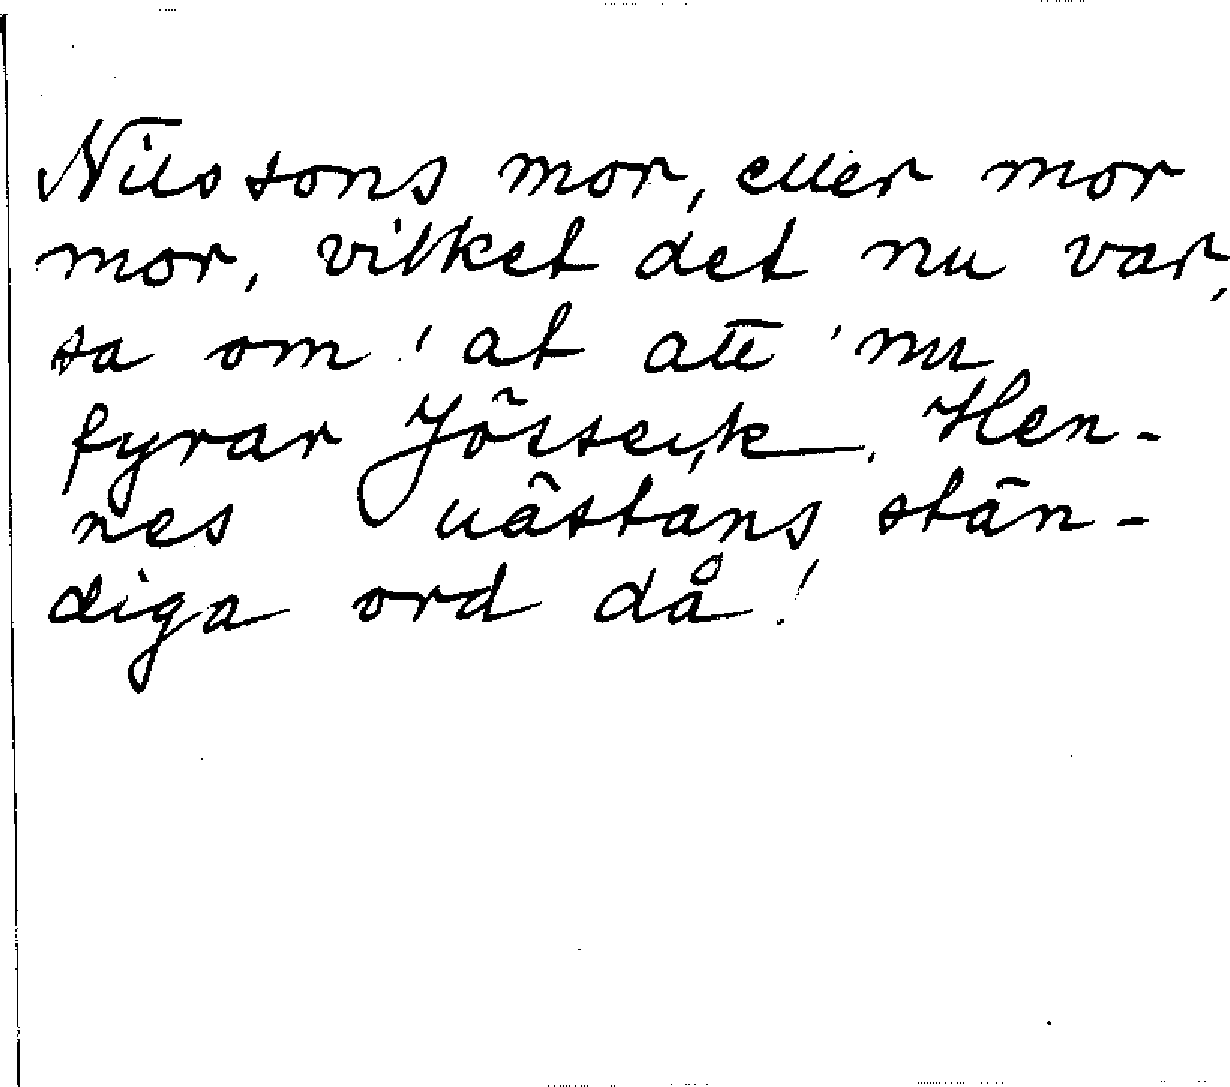 Nilssons mor, eller mor
mor, vilket det nu var,
sa om! at att 'nu
fyrar Jösse,k. Hen-
nes nästans stän-
diga ord då!